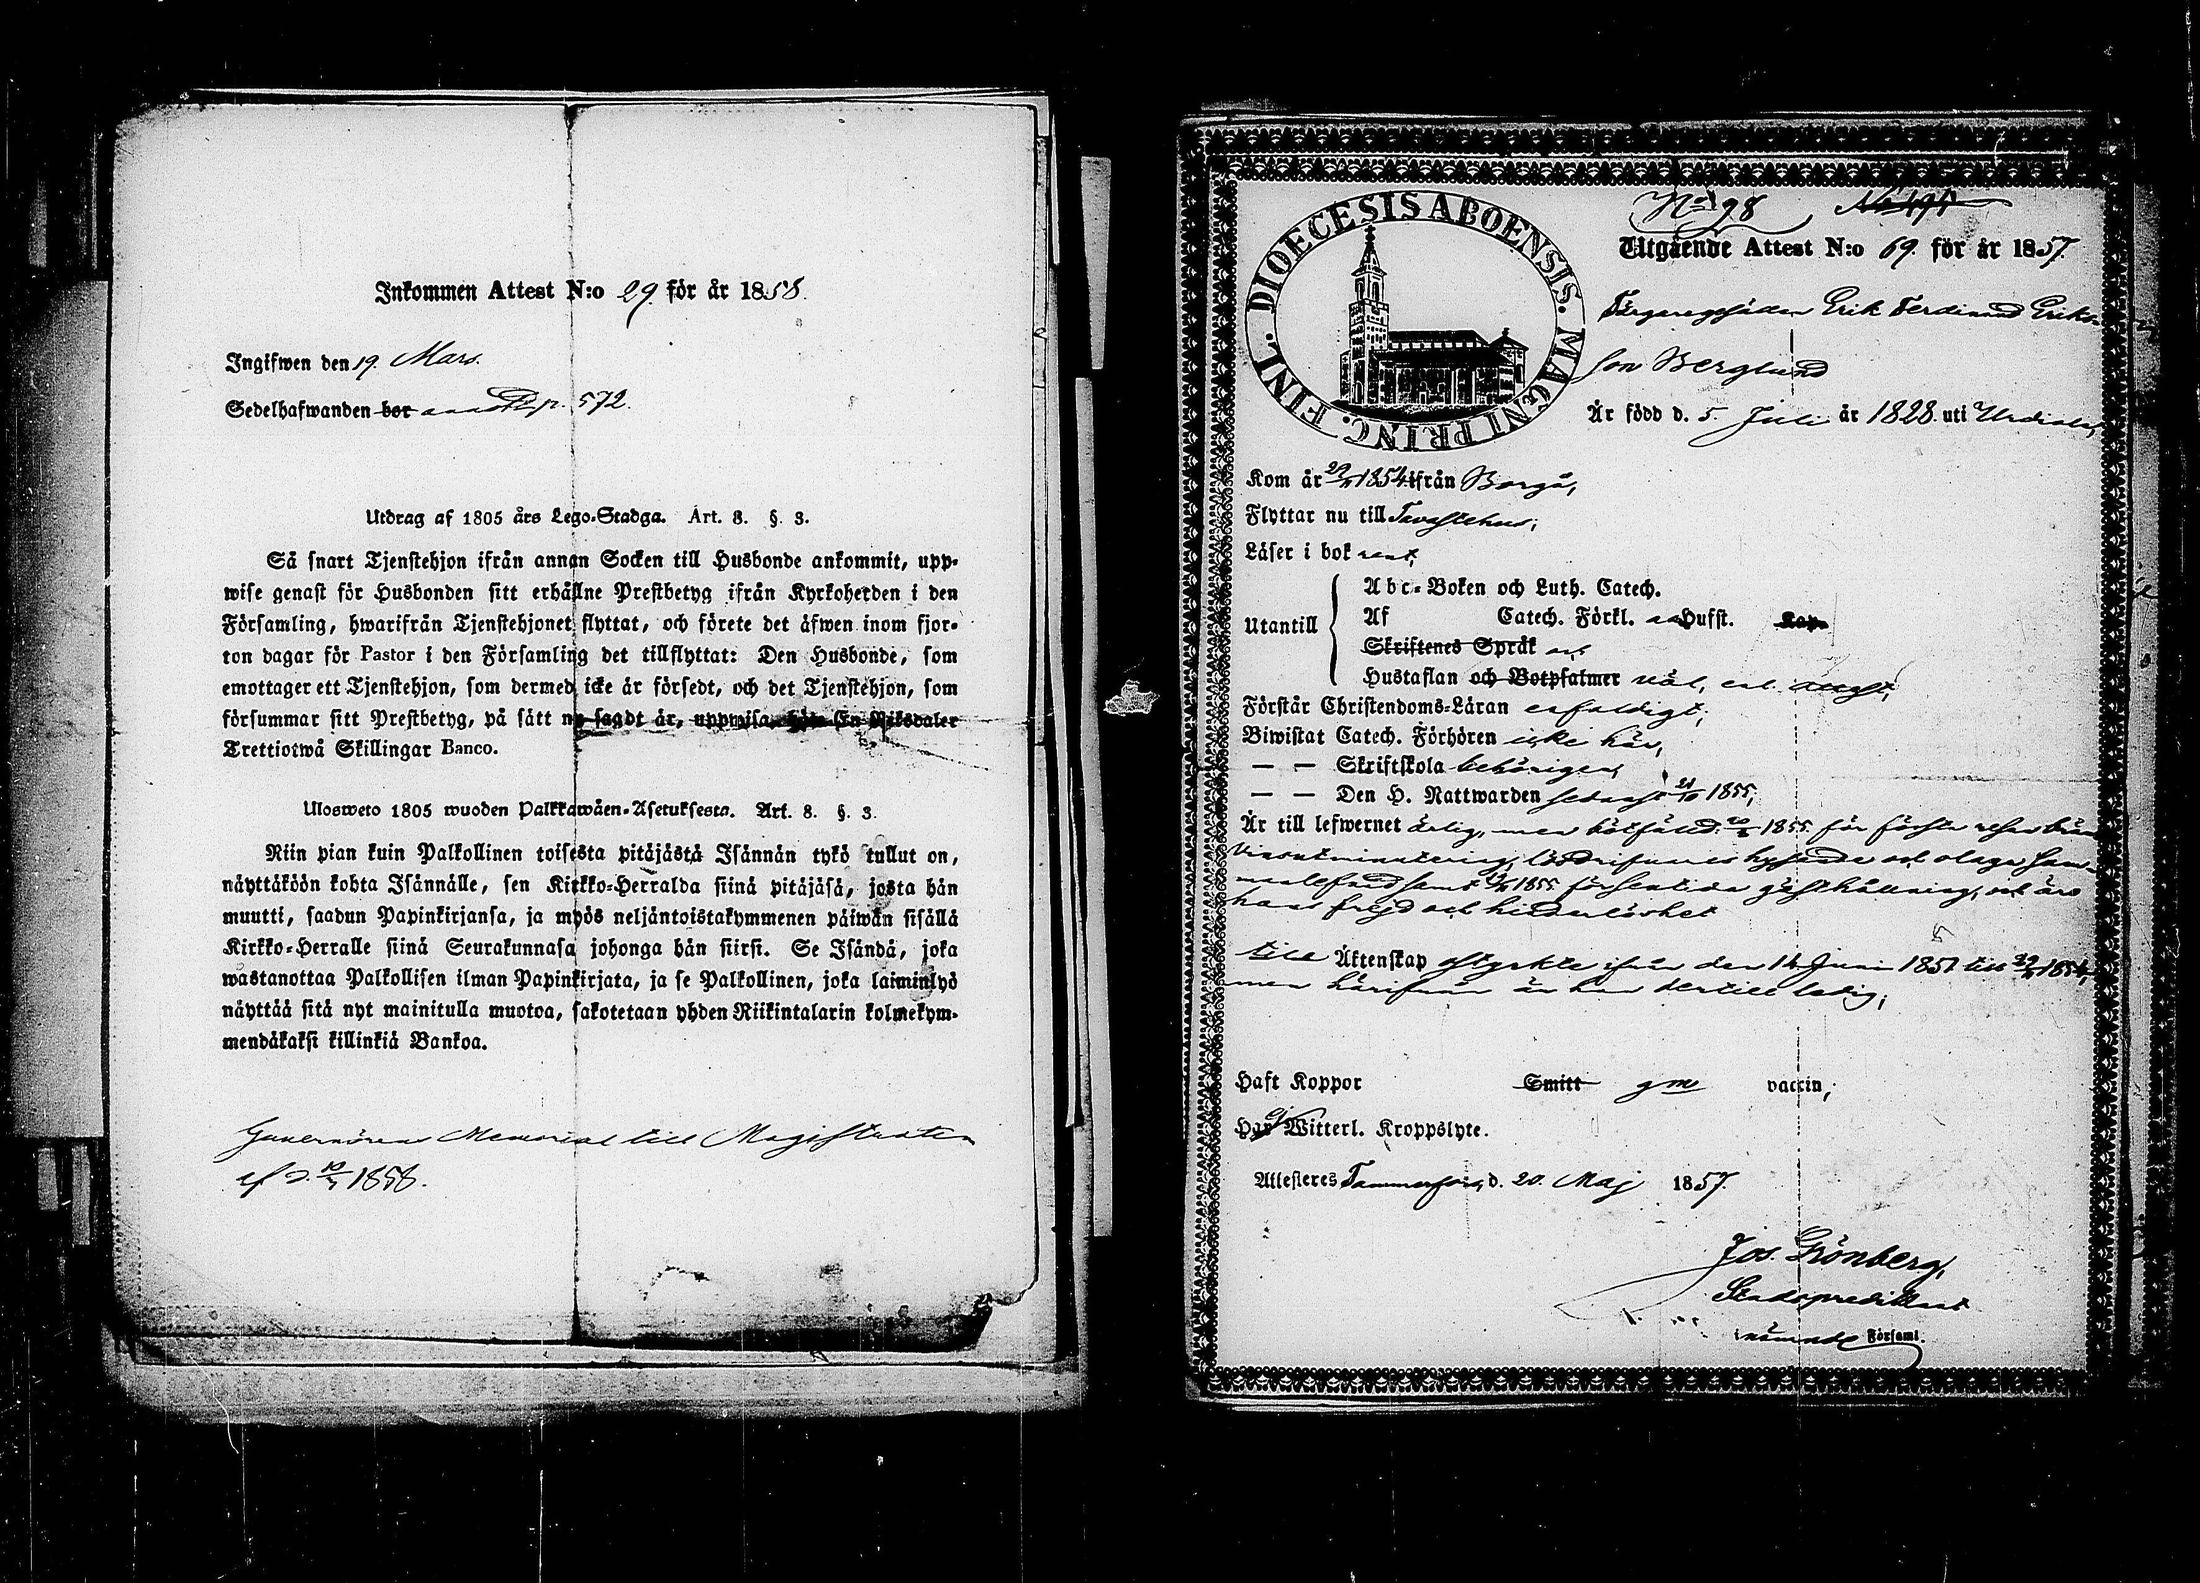 Inkommen Attest N:o 29. för år 1858.
Ingifwen den 19. Mars.
Sedelhafwanden bor p. 572.
Utdrag af 1805 års Lego-Stadga. Art. 8. §. 3.
Så snart Tjenstehjon ifrån annan Socken till Husbonde ankommit, upp-
wise genast för Husbonden sitt erhållne Prestbetyg ifrån Kyrkoherden i den
Församling, hwarifrån Tjenstehjonet flyttat, och förete det äfwen inom fjor-
ton dagar för Pastor i den Församling det tillflyttat: Den Husbonde, som
emottager ett Tjenstehjon, som dermed icke är försedt, och det Tjenstehjon, som
försummar sitt Prestbetyg, på sätt nu sagdt är, uppwisa, böte En Riksdaler
Trettiotwå Skillingar Banco.
Ulosweto 1805 wuoden Palkkawäen-Asetuksesta. Art. 8. §. 3.
Niin pian kuin Palkollinen toisesta pitäjästä Isännän tykö tullut on,
näyttäköön kohta Isännälle, sen Kirkko-Herralda siinä pitäjäsä, josta hän
muutti, saadun Papinkirjansa, ja myös neljäntoistakymmenen päiwän sisällä
Kirkko-Herralle siinä Seurakunnasa johonga hän siirsi. Se Isändä, joka
wastanottaa Palkollisen ilman Papinkirjata, ja se Palkollinen, joka laiminlyö
näyttää sitä nyt mainitulla muotoa, sakotetaan yhden Riikintalarin kolmekym-
mendäkaksi killinkiä Bankoa.
Guvernörens Memorial till Magistraten
af d. 1858.
DIOECESIS ABOENSIS. MAGNI PRINC. FINL.
No 98
Utgående Attest N:o 69. för år 1857.
Färgaregesällen Erik Ferdinand Eriks-
son Berglund
Är född d. 5. Juli år 1828. uti Urdiala,
Kom år 1854 ifrån Borgå,
Flyttar nu till Tavastehus;
Läser i bok rent,
Utantill
Abc-Boken och Luth. Catech.
Af Catech. Förkl. Hufst. Kap.
Skriftenes Språk
Hustaflan och Botpsalmer väl,
Förstår Christendoms-Läran enfaldigt;
Biwistat Catech. Förhören icke här,
— — Skriftskola behörigen,
— — Den H. Nattwarden sednast 1855,
Är till lefwernet ärlig, men bötfälld 1855 för första resan brän-
vinsutminutering, och olaga sam-
samt 1855 för gästhållning, och äro
hans frejd och hinderlöshet
till Äktenskap styrkte ifrån den 14 Juni 1851 till 1854,
men härifrån är han dertill ledig;
Haft Koppor Smitt gm vaccin,
Har ej Witterl. Kroppslyte.
Attesteres Tammerfors, d. 20. Maj 1857.
Jos. Grönberg,
Stadspredikant
i nämnde Församl.